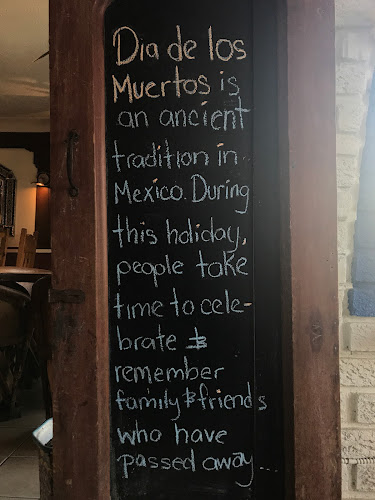 Dia de los
Muertos is
an ancient
tradition in
Mexico. During
this holiday,
people take
time to cele-
brate &
remember
family & friends
who have
passed away...